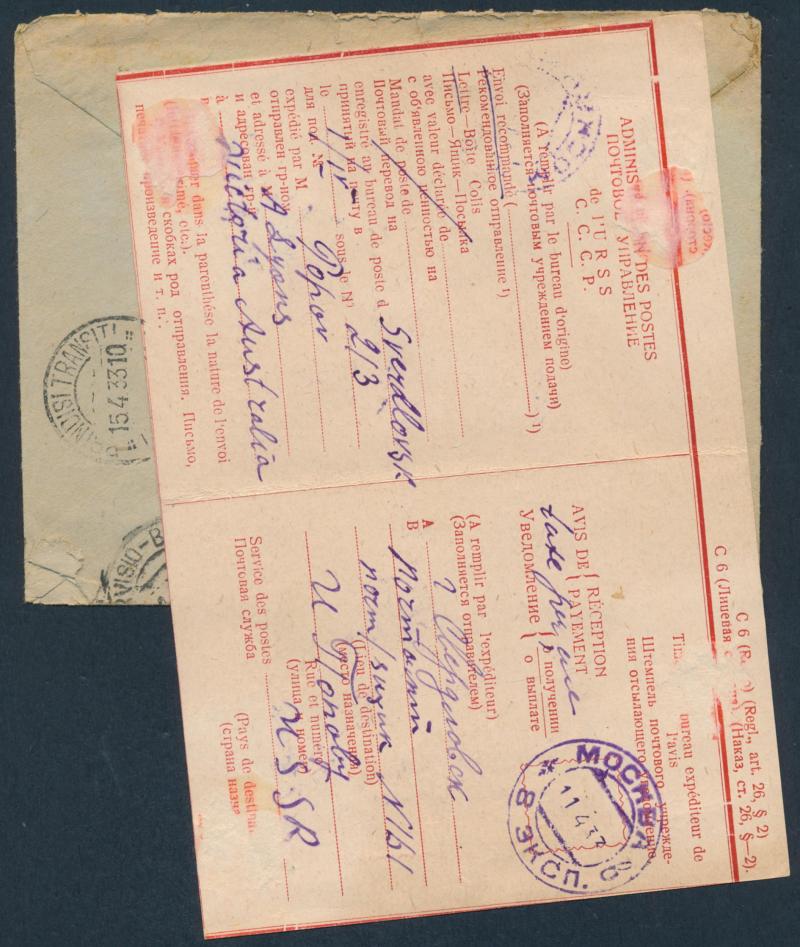 C 6 (Лицевая (Наказ, ст. 26, §—2).
C 6 (Regl., art. 26, § 2)
ADMINIS DES POSTES
ПОЧТОВОЕ УПРАВЛЕНИЕ
de l'URSS
С. С. С. Р.
(A remplir par le bureau d'origine)
(Заполняется почтовым учреждением подачи)
Envoi recommandé ( ) ¹)
Рекомендованное отправление ¹)
Lettre—Boîte Colis
Письмо—Ящик—Посылка
avec valeur déclarée de
с объявленною ценностью на
Mandat de poste de
Почтовый перевод на
enregistré au bureau de poste d Sverdlovsk
принятый на почту в
le 1/IV sous le № 213
для под. №
expédié par M. Popov
отправлен гр-ном
et adressé à M A Lyons
и адресован гр.
à Victoria Australia
в
dans la parenthèse la nature de l'envoi
etc.).
скобках род отправления. Письмо,
произведение и т. п.
bureau expéditeur de
l'avis
Штемпель почтового учрежде-
ния отсылающего
AVIS DE { RÉCEPTION
{ PAYEMENT
Уведомление { о получении
{ о выплате
taxe perçue
(A remplir par l'expéditeur)
(Заполняется отправителем)
A г Свердловск
В Почтамт
почт/ящик N 61
(Lieu de destination)
(место назначения)
И Попову
Rue et numéro
(улица номер)
USSR
Service des postes
Почтовая служба
(Pays de destina
(страна назна
МОСКВА
11 4 33
8 ЭКСП. 8
NDISI TRANSITI
15.4.33.10
VISIO-B